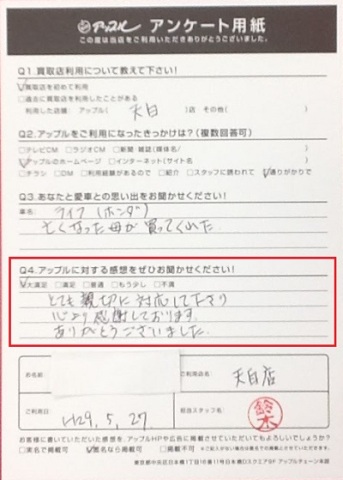 アップル アンケート用紙
この度は当店をご利用いただきありがとうございました。
Q1.買取店利用について教えて下さい!
☑買取店を初めて利用
□過去に買取店を利用したことがある
利用した店舗、アップル( 天白 )店 その他( )
Q2.アップルをご利用になったきっかけは?(複数回答可)
□テレビCM □ラジオCM □新聞・雑誌(媒体名/ )
☑アップルのホームページ □インターネット(サイト名 )
□チラシ □DM □利用経験があるので □紹介 □スタッフに誘われて ☑通りがかりで
Q3.あなたと愛車との思い出をお聞かせください!
車名: ライフ (ホンダ)
亡くなった母が買ってくれた。
Q4.アップルに対する感想をぜひお聞かせください!
☑大満足 □満足 □普通 □もう少し □不満
とても親切に対応して下さり
心より感謝しております。
ありがとうございました。
お名前
ご利用店名 天白店
ご利用日 H29.5.27
担当スタッフ名 鈴木
お客様に書いていただいた感想を、アップルHPや広告に掲載させていただいてもよろしいでしょうか?
□実名で掲載可 ☑匿名なら掲載可 □掲載不可
東京都中央区日本橋1丁目16番11号日本橋Dスクエア5F アップルチェーン本部